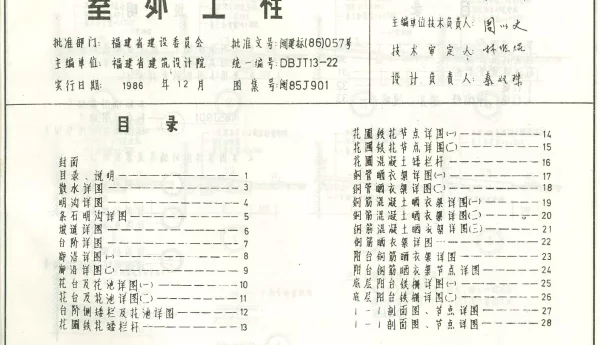 室外工程
批准部门：福建省建设委员会
批准文号：闽建标(86)057号
主编单位：福建省建筑设计院
统一编号：DBJT13—22
实行日期：1986 年 12月
图集号：闽85J901
主编单位技术负责人：
技术审定人：
设计负责人：
目录
封面
目录、说明 1
散水详图 3
明沟详图 4
条石明沟详图 5
坡道详图 6
台阶详图 7
廊沿详图(一) 8
廊沿详图(二) 9
花台及花池详图(一) 10
花台及花池详图(二) 11
台阶侧矮栏及花池详图 12
花圃铁花矮栏杆 13
花圃铁花节点详图(一) 14
花圃铁花节点详图(二) 15
花圃混凝土矮栏杆 16
钢管晒衣架详图(一) 17
钢管晒衣架详图(二) 18
钢筋混凝土晒衣架详图(一) 19
钢筋混凝土晒衣架详图(二) 20
钢筋混凝土晒衣架详图(三) 21
钢筋晒衣架详图 22
阳台钢筋晒衣架详图 23
阳台钢筋晒衣架节点详图 24
底层阳台铁栅详图(一) 25
底层阳台铁栅详图(二) 26
1—1剖面图、节点详图 27
1—1剖面图、节点详图 28